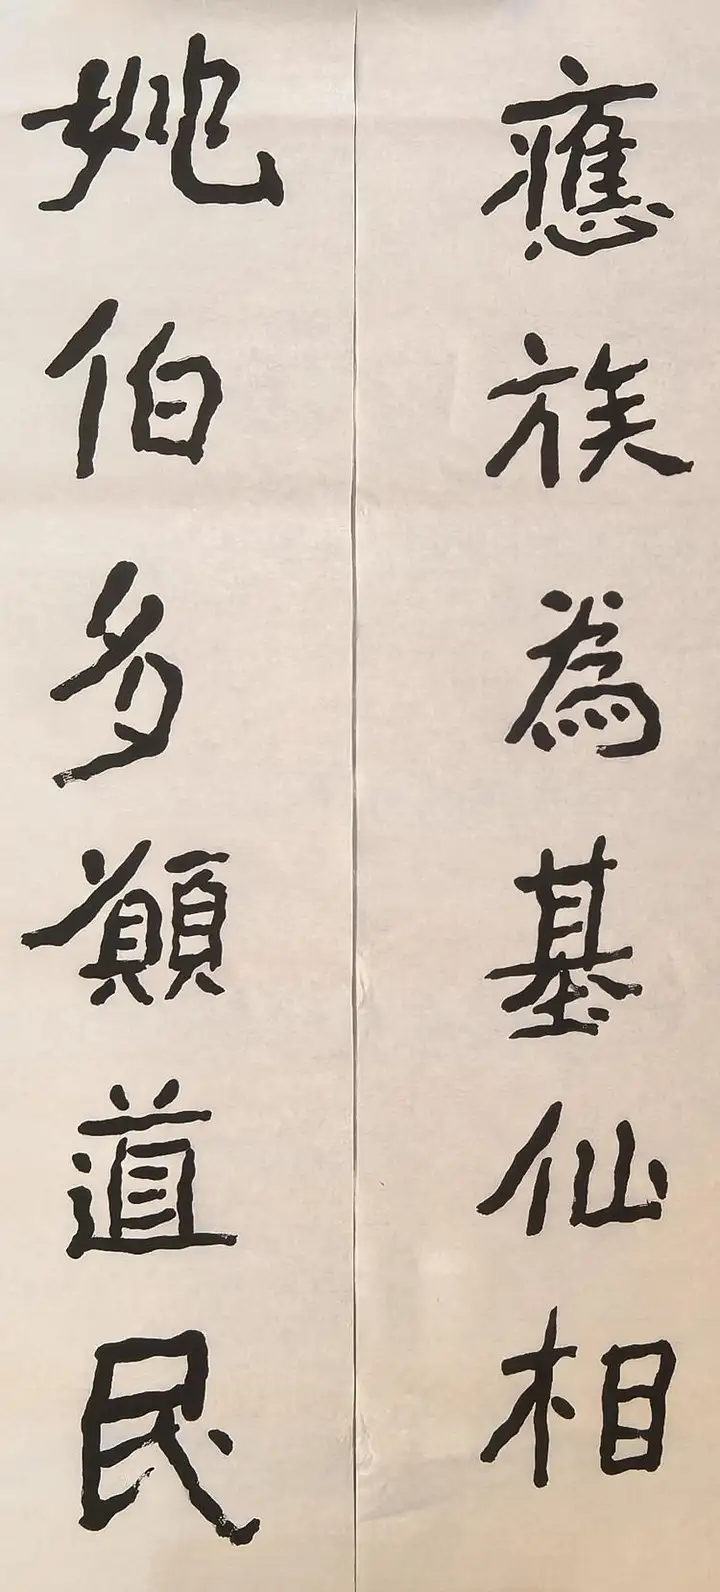 應族為基仙相
姚伯多願道民